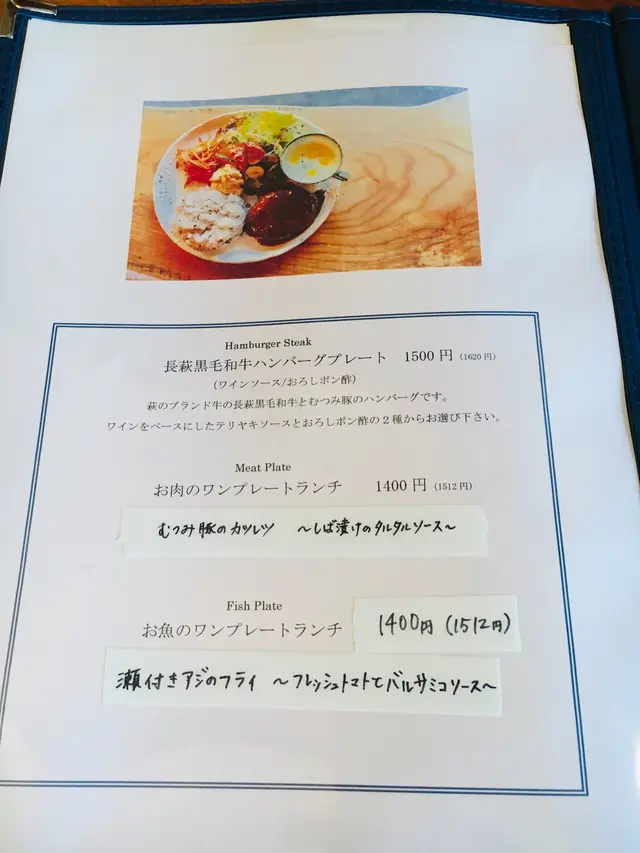 Hamburger Steak
長萩黒毛和牛ハンバーグプレート 1500円 (1620円)
(ワインソース/おろしポン酢)
萩のブランド牛の長萩黒毛和牛とむつみ豚のハンバーグです。
ワインをベースにしたテリヤキソースとおろしポン酢の2種からお選び下さい。
Meat Plate
お肉のワンプレートランチ 1400円 (1512円)
むつみ豚のカツレツ 〜しば漬けのタルタルソース〜
Fish Plate
お魚のワンプレートランチ 1400円 (1512円)
瀬付きアジのフライ 〜フレッシュトマトとバルサミコソース〜